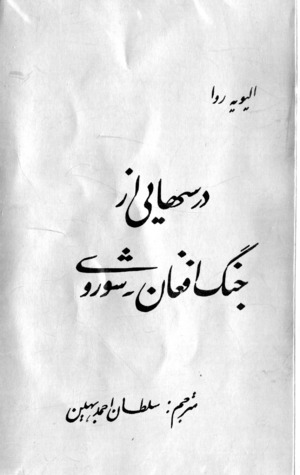 الیویه روا
درسهایی از
جنگ افغان - شوروی
مترجم: سلطان احمد بهین